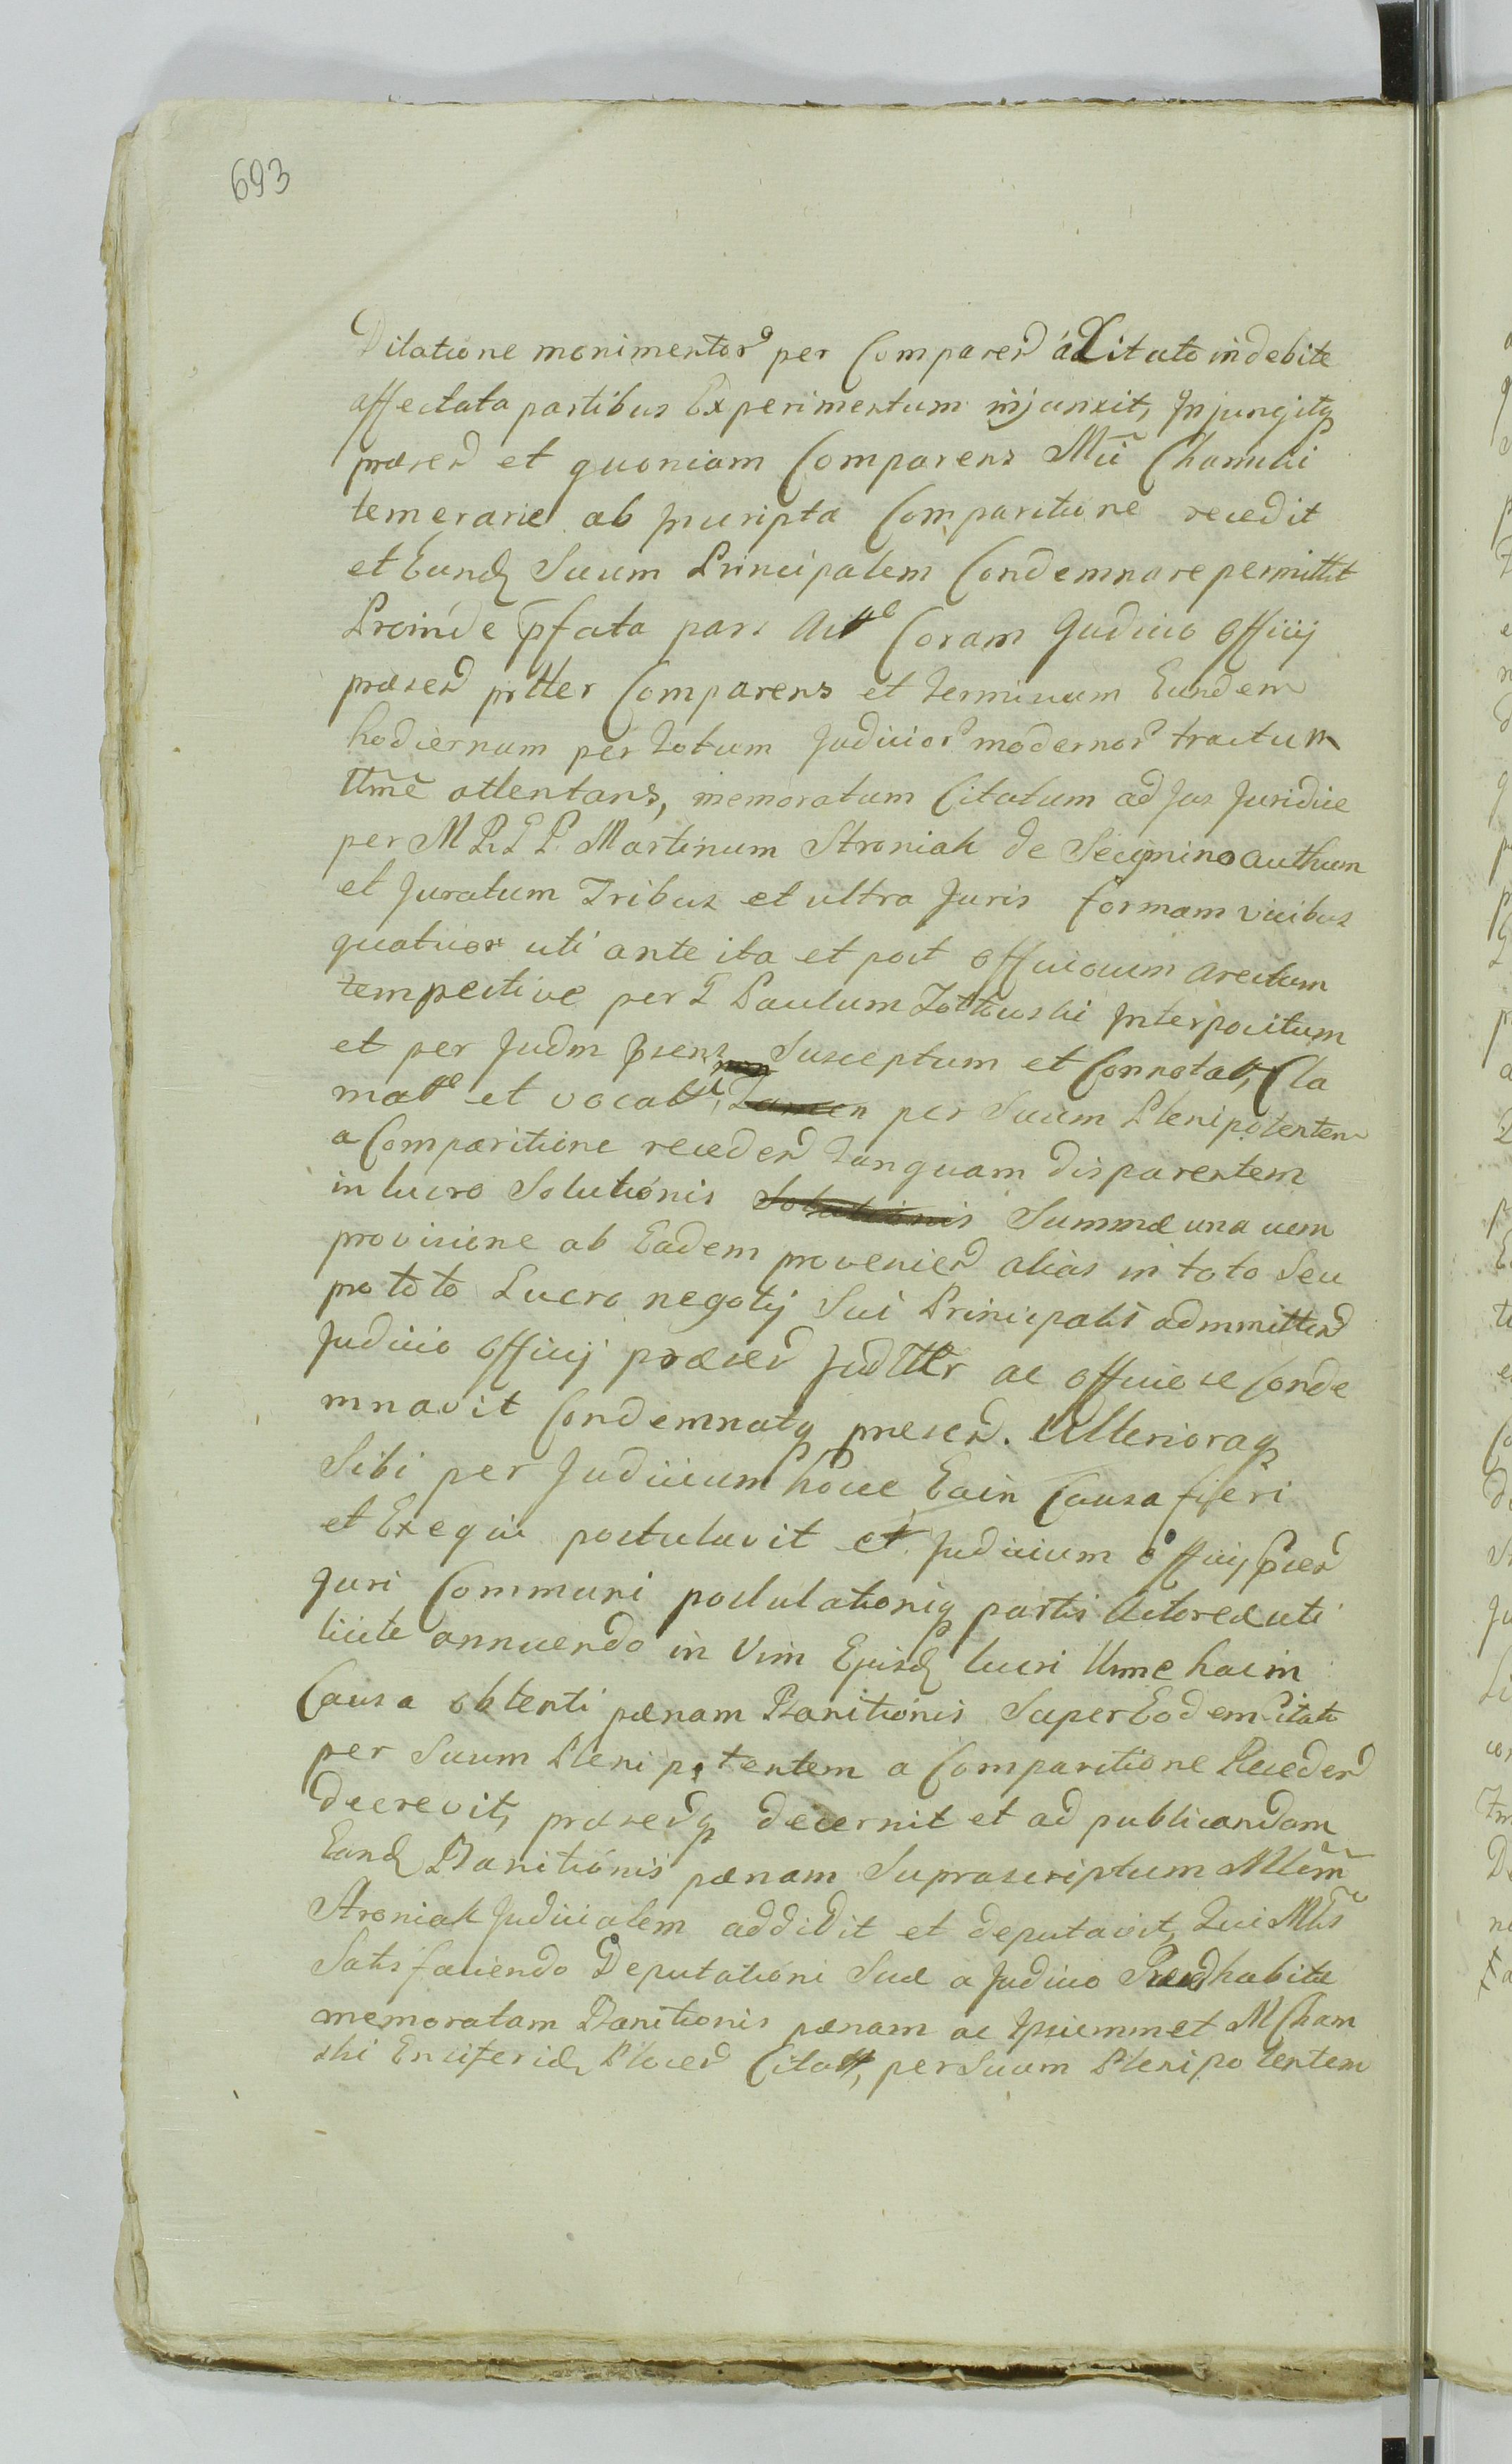 693
Dilatione monimentor per Comparend a Citato indebite
affectata partibus Experimentum injunxit, Injungitq
præsend et quoniam Comparens
temerarie ab inscripta Comparitione recedit
et Eund Suum Principalem Condemnare permittit
Proinde pfata pars Coram Judicio Officij
præsend pntter Comparens et terminum Eundem
hodiernum per totum Judicior modernor tractum
ttme attentans, memoratum Citatum ad jus Juridice
per M Martinum Stroniak de Secymino authum
et Juratum Tribus et ultra Juris formam vicibus
quatuor uti ante ita et post Officiosum arestum
tempestive per G Paulum Interpositum
et per Judm psens Susceptum et Connotatt, Cla
matt et vocatt, per Suum Plenipotentem
a Comparitione recedend tanquam disparentem
in lucro Solutionis Solutionis Summæ una cum
provisione ab Eadem proveniend alias in toto Seu
pro toto Lucro negotij Sui Principalis admmittend
Judicio Officij præsend Judttter ac officiose Conde
mnavit Condemnatq presend. Ulterioraq
Sibi per Judicium hocce Ea in Causa fieri
et Exequi postulavit et Judicium officij psend
Juri Communi postulationiq partis Actoreæ uti
licite annuendo in Vim Ejusd lucri ttme hac in
Causa obtenti pænam Banitionis Super Eodem Citato
per Suum Plenipotentem a Comparitione Recedend
decrevit, præsendq decernit et ad publicandam
Eand Banitionis pænam Suprascriptum Mlem
Stroniak Judicialem addidit et deputavit, Qui Mtis
Satisfaciendo Deputationi Suæ a Judicio Præsend habitæ
memoratam Banitionis pænam ac Ipsiemmet M Cham
ski Ensiferid Plocen Citatt, per Suum Plenipotentem